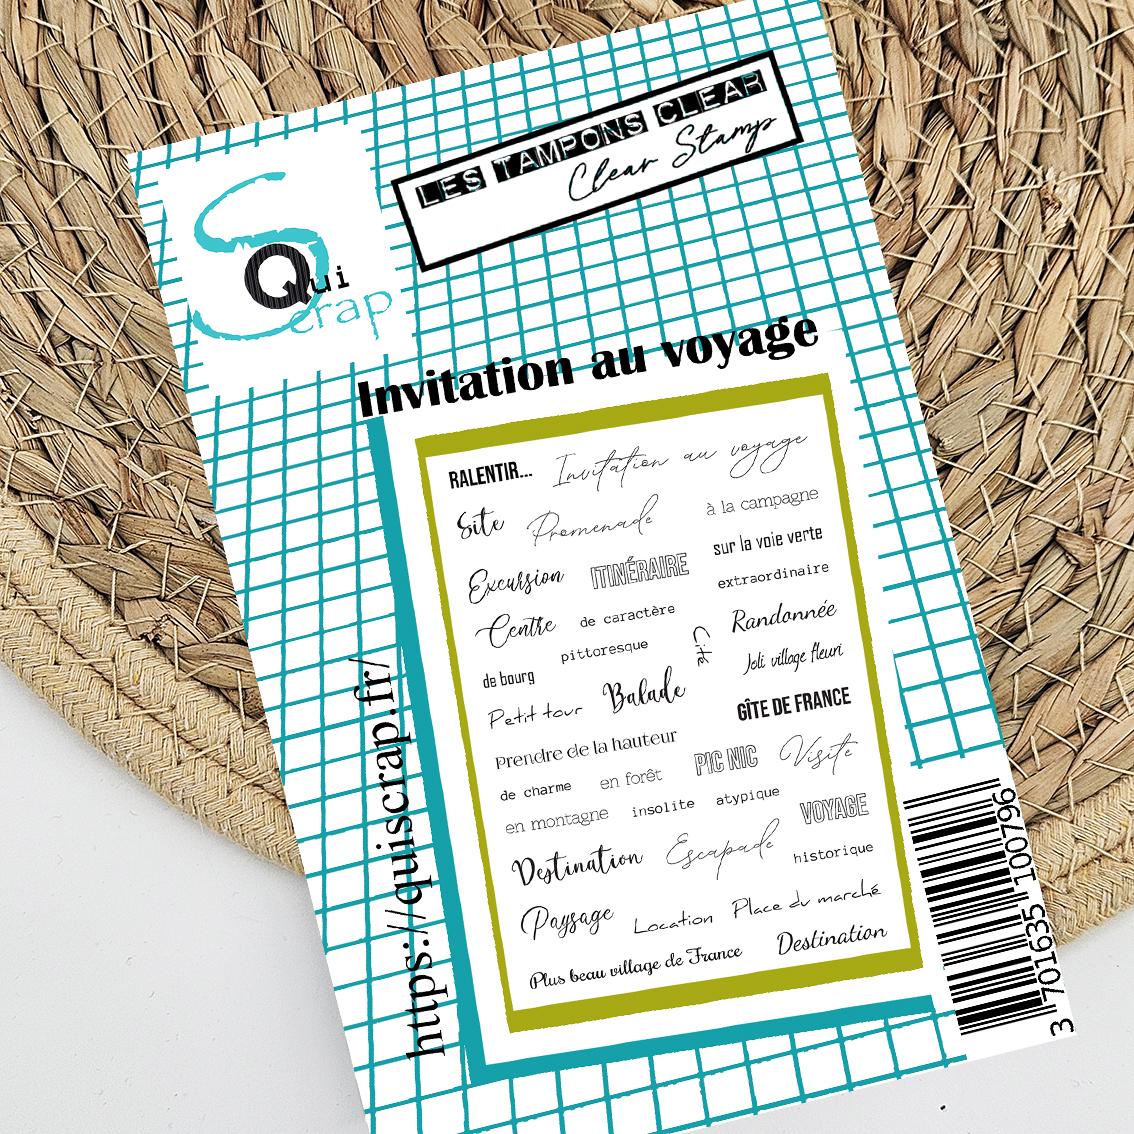 LES TAMPONS CLEAR
Clear Stamp
Qui
Scrap
Invitation au voyage
RALENTIR... Invitation au voyage
Site Promenade à la campagne
Excursion ITINÉRAIRE sur la voie verte
extraordinaire
Centre de caractère Randonnée
pittoresque Cité
de bourg Joli village fleuri
Petit tour Balade
GÎTE DE FRANCE
Prendre de la hauteur PIC NIC Visite
de charme en forêt
en montagne insolite atypique VOYAGE
Destination Escapade historique
Paysage Location Place du marché
Plus beau village de France Destination
https://quiscrap.fr/
3 701635 100796